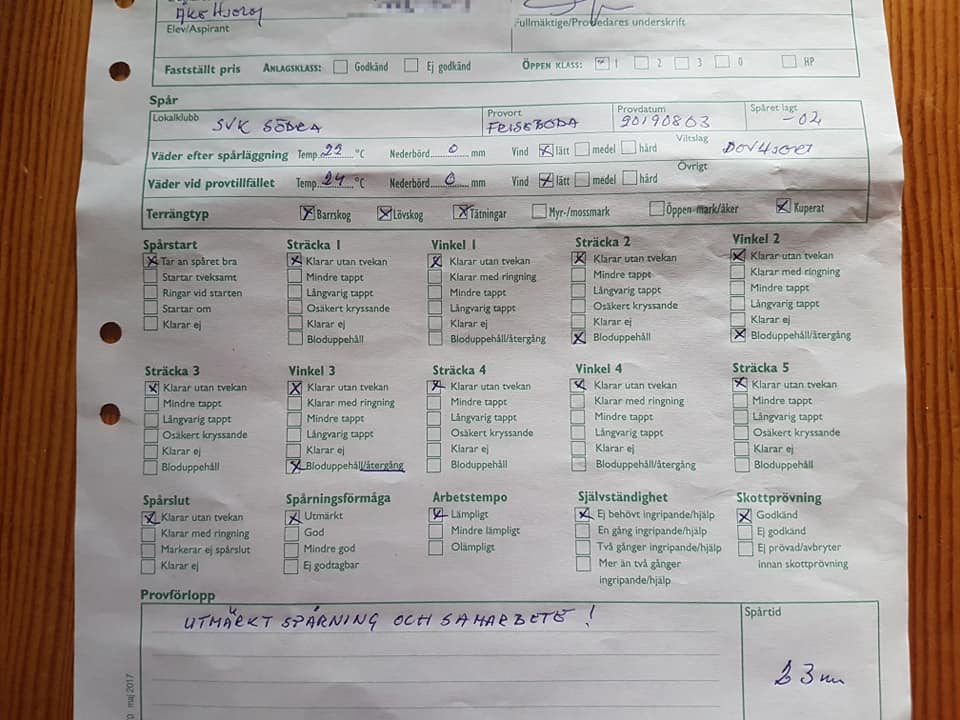 Åke Hjort
Elev/Aspirant
Fullmäktige/Provledares underskrift
Fastställt pris ANLAGSKLASS: Godkänd Ej godkänd ÖPPEN KLASS: 1 2 3 0 HP
Spår
Lokalklubb Provort Provdatum Spåret lagt
SVK SÖDRA FRISEBODA 20190803 -02
Väder efter spårläggning Temp. 22 °C Nederbörd 0 mm Vind lätt medel hård Viltslag DOVHJORT
Väder vid provtillfället Temp. 24 °C Nederbörd 0 mm Vind lätt medel hård Övrigt
Terrängtyp Barrskog Lövskog Tätningar Myr-/mossmark Öppen mark/åker Kuperat
Spårstart Sträcka 1 Vinkel 1 Sträcka 2 Vinkel 2
Tar an spåret bra Klarar utan tvekan Klarar utan tvekan Klarar utan tvekan Klarar utan tvekan
Startar tveksamt Mindre tappt Klarar med ringning Mindre tappt Klarar med ringning
Ringar vid starten Långvarig tappt Mindre tappt Långvarig tappt Mindre tappt
Startar om Osäkert kryssande Långvarig tappt Osäkert kryssande Långvarig tappt
Klarar ej Klarar ej Klarar ej Klarar ej Klarar ej
Bloduppehåll Bloduppehåll/återgång Bloduppehåll Bloduppehåll/återgång
Sträcka 3 Vinkel 3 Sträcka 4 Vinkel 4 Sträcka 5
Klarar utan tvekan Klarar utan tvekan Klarar utan tvekan Klarar utan tvekan Klarar utan tvekan
Mindre tappt Klarar med ringning Mindre tappt Klarar med ringning Mindre tappt
Långvarig tappt Mindre tappt Långvarig tappt Mindre tappt Långvarig tappt
Osäkert kryssande Långvarig tappt Osäkert kryssande Långvarig tappt Osäkert kryssande
Klarar ej Klarar ej Klarar ej Klarar ej Klarar ej
Bloduppehåll Bloduppehåll/återgång Bloduppehåll Bloduppehåll/återgång Bloduppehåll
Spårslut Spårningsförmåga Arbetstempo Självständighet Skottprövning
Klarar utan tvekan Utmärkt Lämpligt Ej behövt ingripande/hjälp Godkänd
Klarar med ringning God Mindre lämpligt En gång ingripande/hjälp Ej godkänd
Markerar ej spårslut Mindre god Olämpligt Två gånger ingripande/hjälp Ej prövad/avbryter
Klarar ej Ej godtagbar Mer än två gånger innan skottprövning
ingripande/hjälp
Provförlopp
UTMÄRKT SPÅRNING OCH SAMARBETE ! Spårtid
23 m
maj 2017